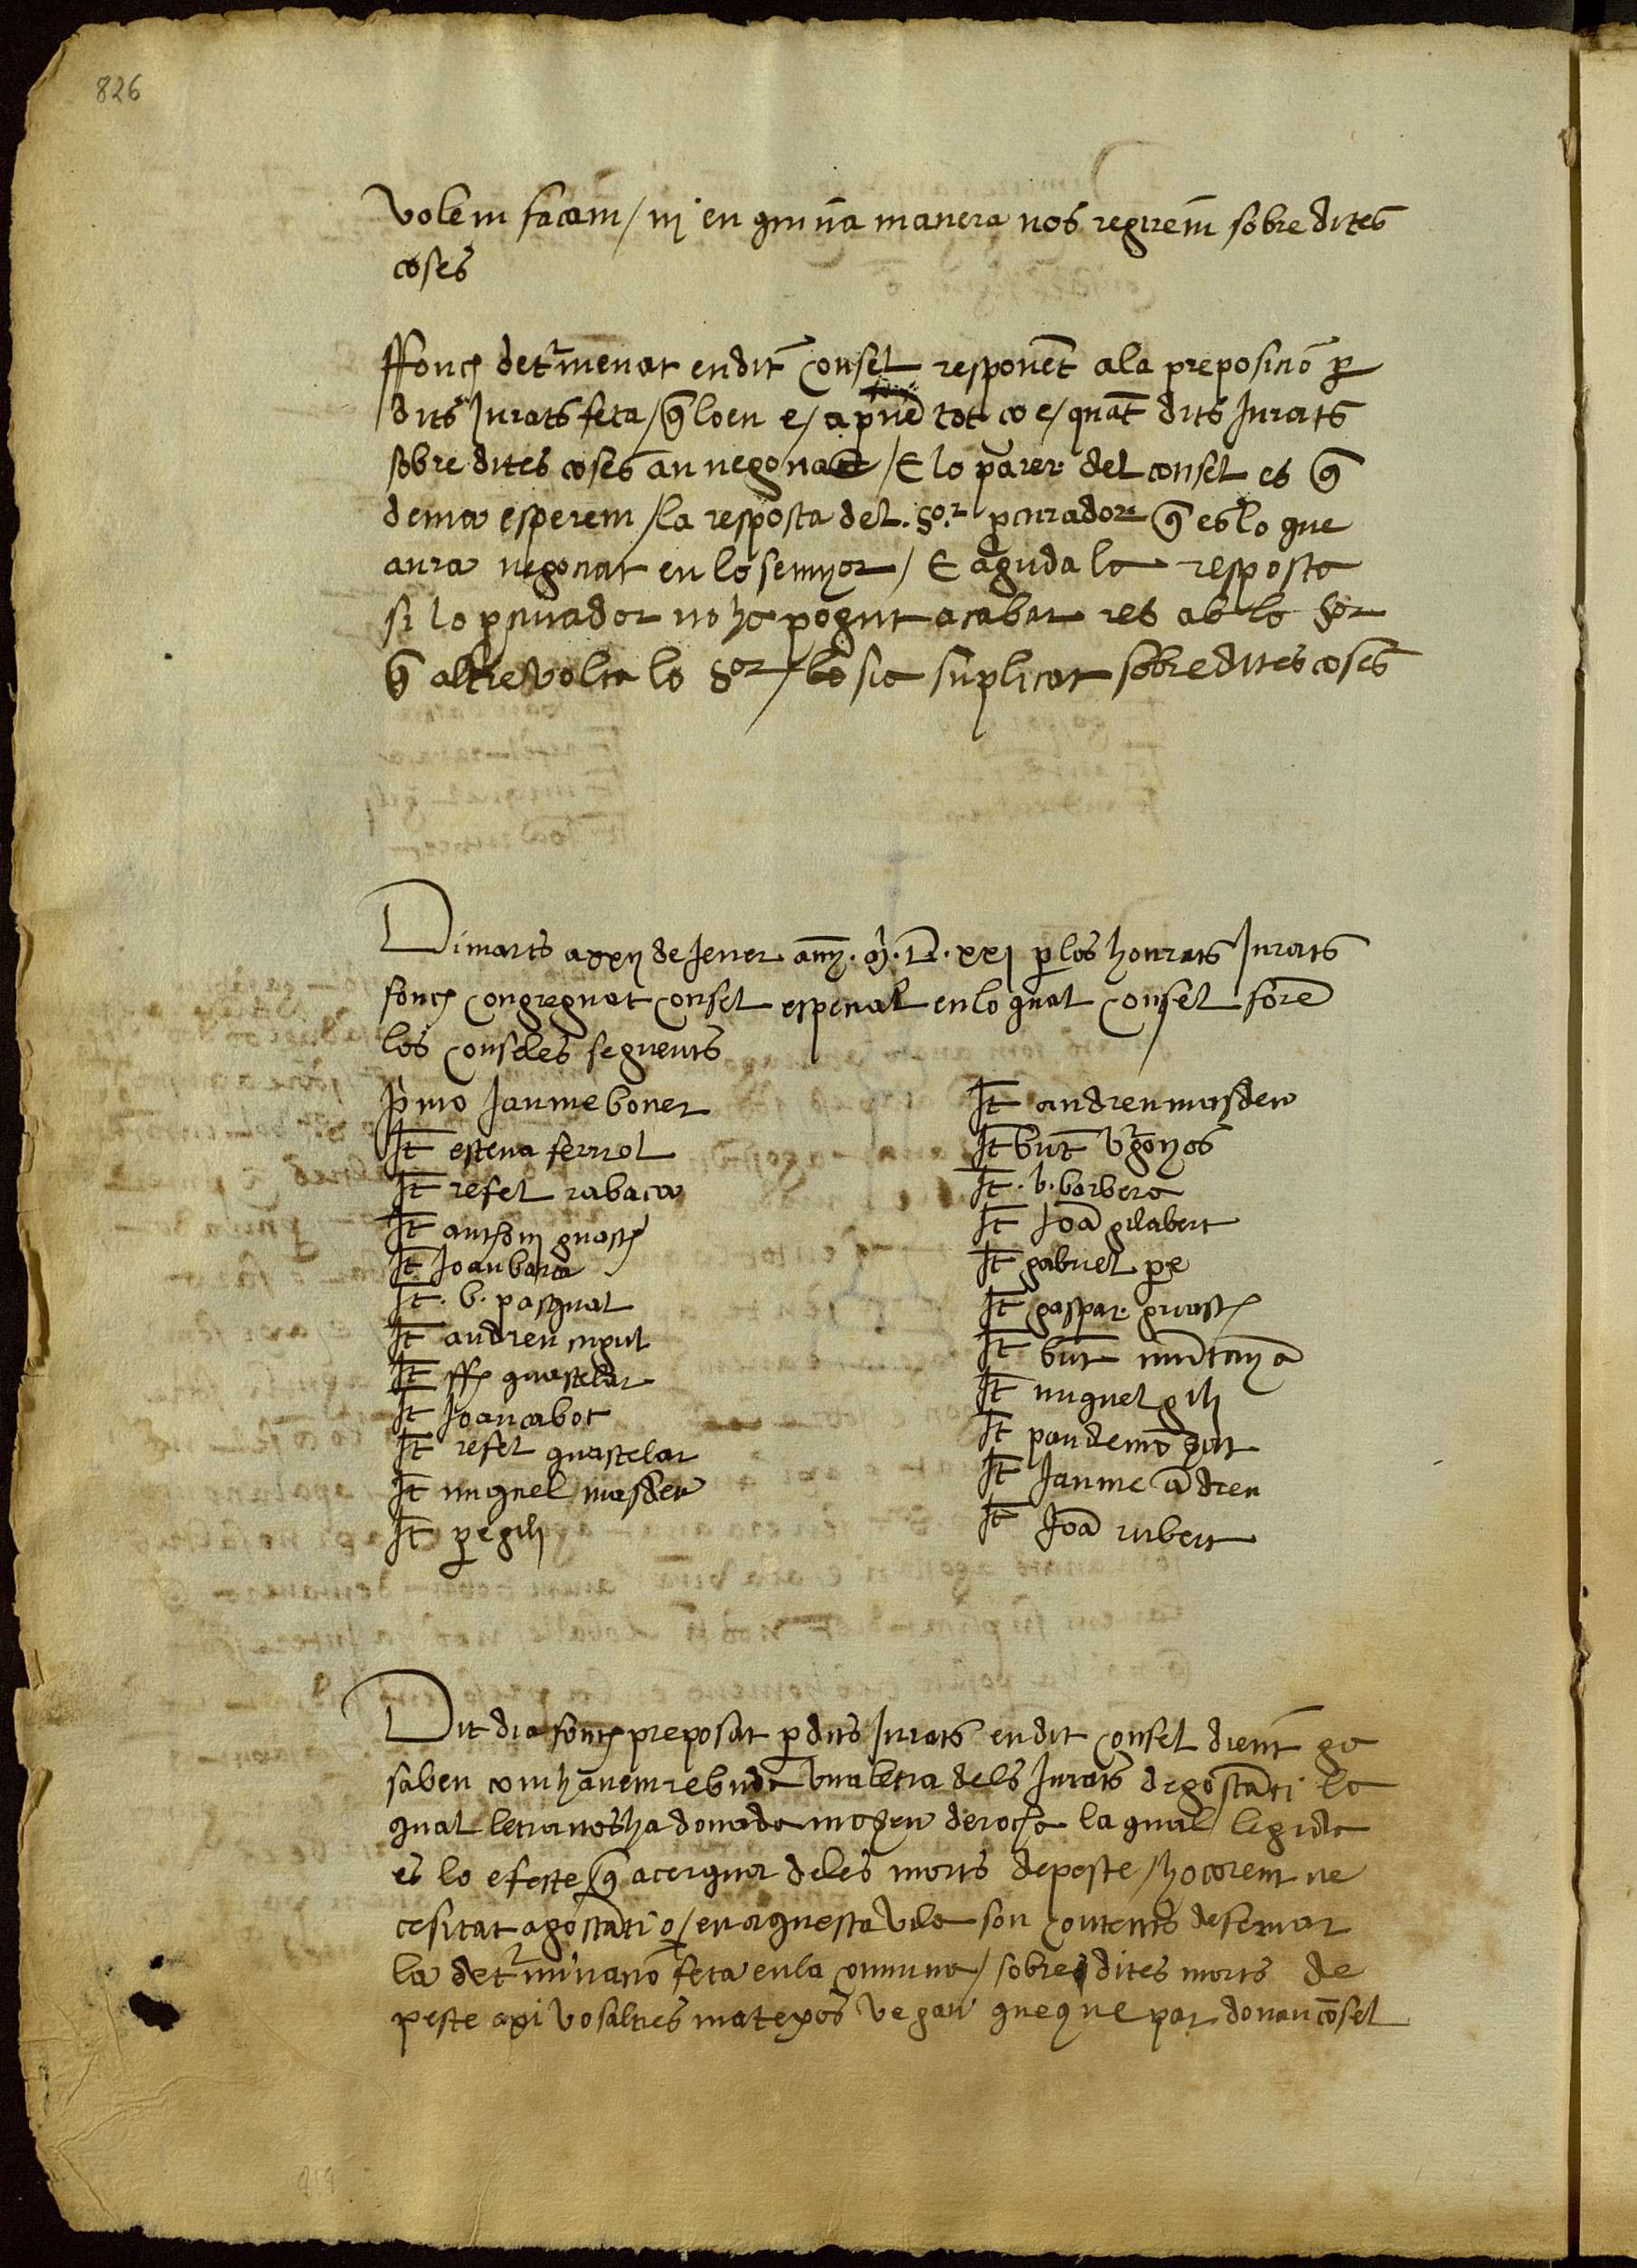 826
volem façam / nj en quinña manera nos regirem̃ sobre dites
coses
ffonch det'menat en dit consel responẽt ala preposicio p
dits Jurats feta / q̃ loen e / aproue tot co e / quãt dits Jurats
sobre dites coses an negociat / E lo parer del consel es q̃
dema esperem / la resposta del .Sor. pcurador q̃ es lo que
aura negociat en lo senyor / E aguda la resposta
si lo pcurador no ha pogut acabar res ab lo Sor
q̃ altre volta lo Sor / lo sia suplicat sobre dites coses
Dimarts a xxij de Jener any .M. D. xxj p los honrats Jurats
fonch congreguat consel especial en lo qual consel forẽ
los conseles seguents
Pr̃mo Jaume boner
It̃ esteua ferriol
It̃ refel rabaca
It̃ anthonj guasch
It̃ Joan barca
It̃ .b. pasqual
It̃ andreu cugul
It̃ ffr guastelar
It̃ Joan cabot
It̃ refel guastelar
It̃ miquel masdeu
It̃ pe gili
It̃ andreu masdeu
It̃ bñt v'gonyos
It̃ .b. barbera
It̃ Joã gilabert
It̃ gabriel pe
It̃ gaspar guasch
It̃ bñt mũtanya
It̃ miquel gili
It̃ pau de mõgut
It̃ Jaume ãdreu
It̃ Joã rubert
Dit dia fonch preposat p dits Jurats en dit consel dient ga
saben com hauem rebuda vna letra dels Jurats de gostãti la
qual letra nos ha donada mosen de rocha la qual legida
es lo efecte q̃ acerqua deles morts de peste / hocorent ne
cesitat a gostãti o / en aquesta vila son contents de seruar
la det'minacio feta en la comuna / sobre dites morts de
peste axi vosaltres matexos vegau que que par donau cõsel